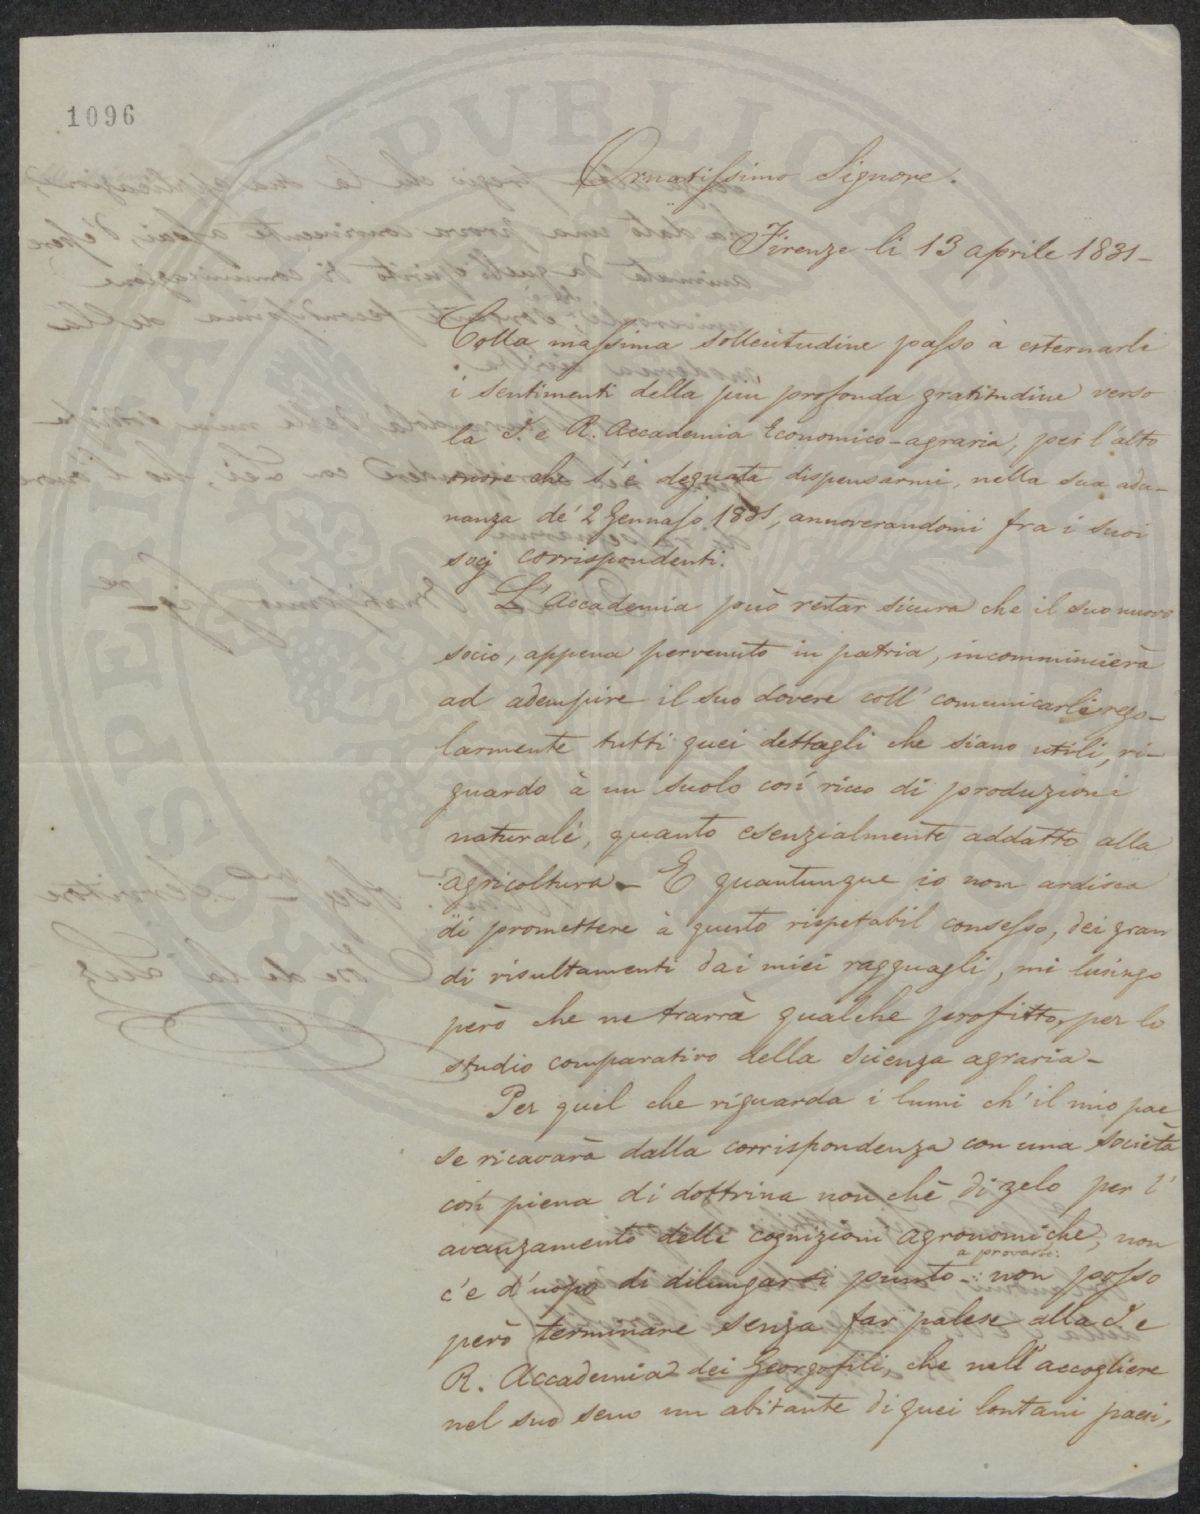 1096
Ornatissimo Signore.
Firenze li 13 aprile 1831-
Colla massima sollecitudine passo à esternarle
i sentimenti della più profonda gratitudine verso
la I. e R. Accademia Economico-agraria, per l'alto
onore che s'è degnata dispensarmi, nella sua adu-
nanza de' 2 Gennajo 1831, annoverandomi fra i suoi
socj corrispondenti.
L'Accademia può restar sicura che il suo nuovo
socio, appena pervenuto in patria, incommincierà
ad adempire il suo dovere coll' comunicarle rego-
larmente tutti quei dettagli che siano utili, ri-
guardo à un suolo così ricco di produzioni
naturali, quanto esenzialmente addatto alla
agricoltura- E quantunque io non ardisca
di promettere à questo rispetabil consesso, dei gran
di risultamenti dai miei ragguagli, mi lusingo
però che ne trarrà qualche profitto, per lo
studio comparativo della scienza agraria-
Per quel che riguarda i lumi ch'il mio pae
se ricavarà dalla corrispondenza con una società
così piena di dottrina non chè di zelo per l'
avanzamento delle cognizioni agronomiche, non
a provarli:
c'è d'uopo di dilungarsi punto-: non posso
però terminare senza far palese alla I. e
R. Accademia dei Georgofili, che nell'accogliere
nel suo seno un abitante di quei lontani paesi,
PROSPERITAS PUBLICAE